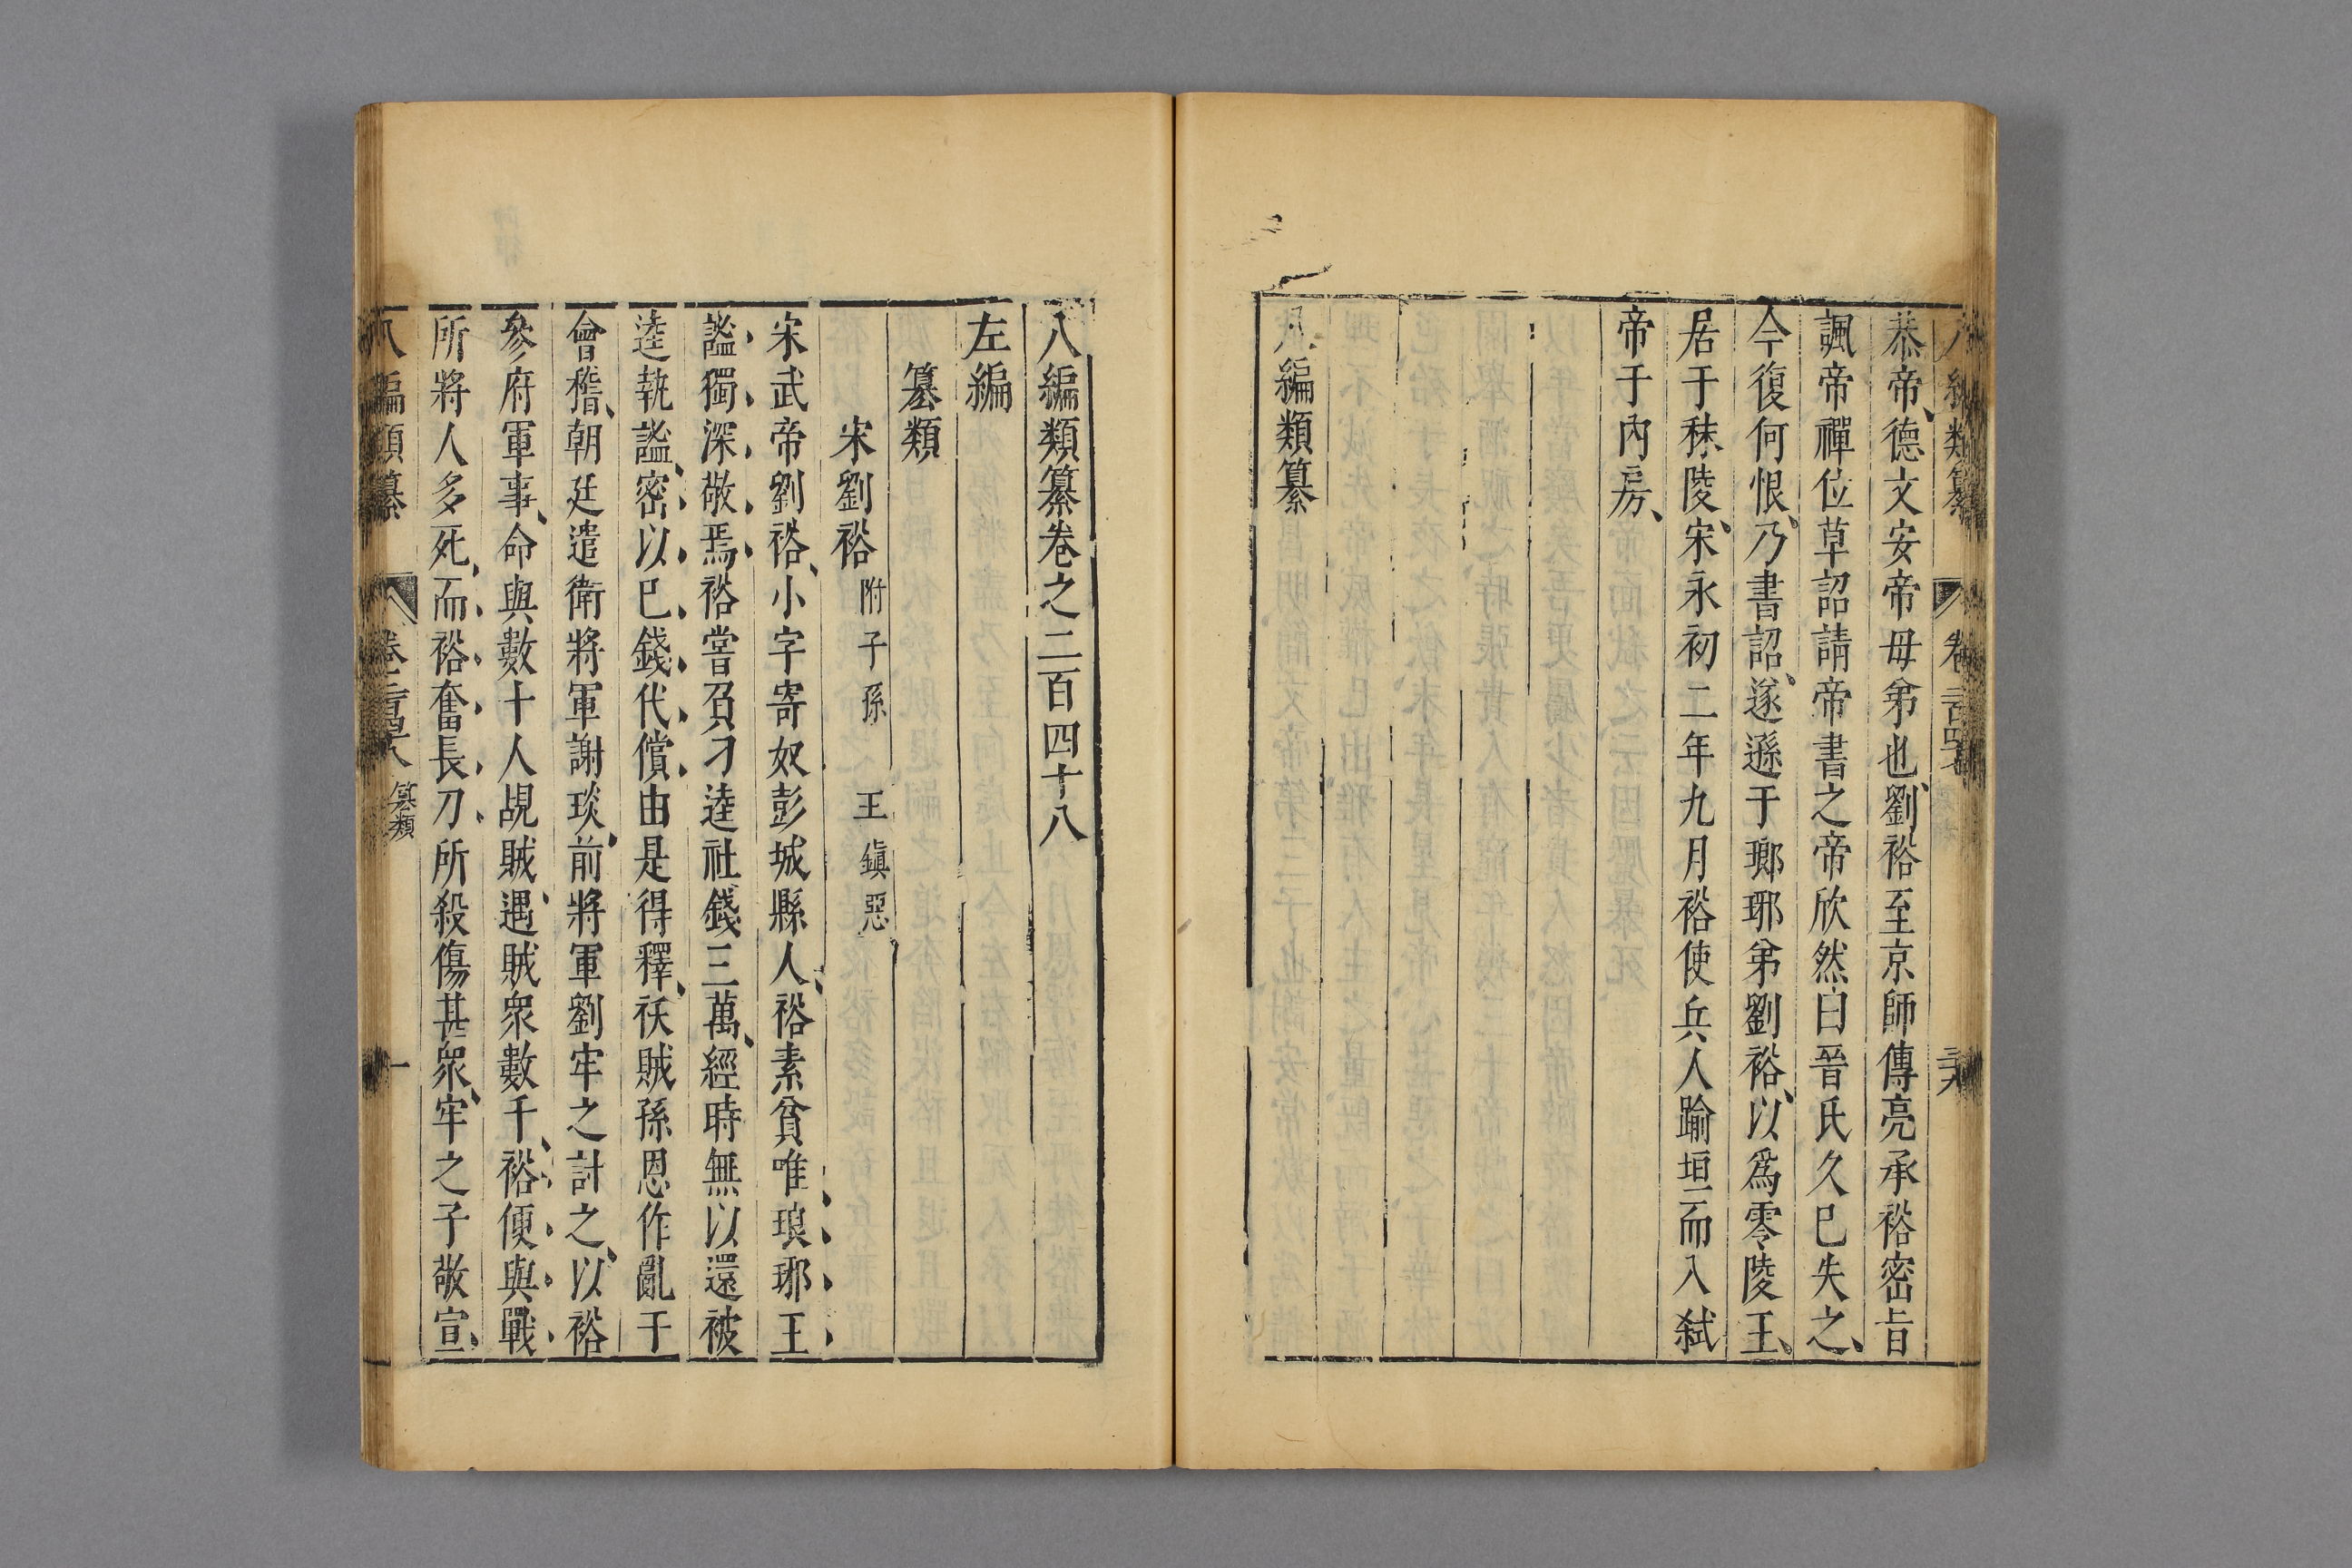 八編類纂 卷二百四十七 二十八
恭帝德文安帝母弟也劉裕至京師傳亮承裕密旨
諷帝禪位草詔請帝書之帝欣然曰晉氏久已失之
今復何恨乃書詔遂遜于瑯琊弟劉裕以爲零陵王
居于秣陵宋永初二年九月裕使兵人踰垣而入弑
帝于內房
八編類纂
八編類纂卷之二百四十八
左編
簒類
宋劉裕 附子孫 王鎭惡
宋武帝劉裕小字寄奴彭城縣人裕素貧唯琅琊王
謐獨深敬焉裕嘗負刁逵社錢三萬經時無以還被
逵執謐密以已錢代償由是得釋祅賊孫恩作亂于
會稽朝廷遣衛將軍謝琰前將軍劉牢之計之以裕
參府軍事命與數十人覘賊遇賊衆數千裕便與戰
所將人多死而裕奮長刀所殺傷甚衆牢之子敬宣
八編類纂 卷二百四十八 簒類 一